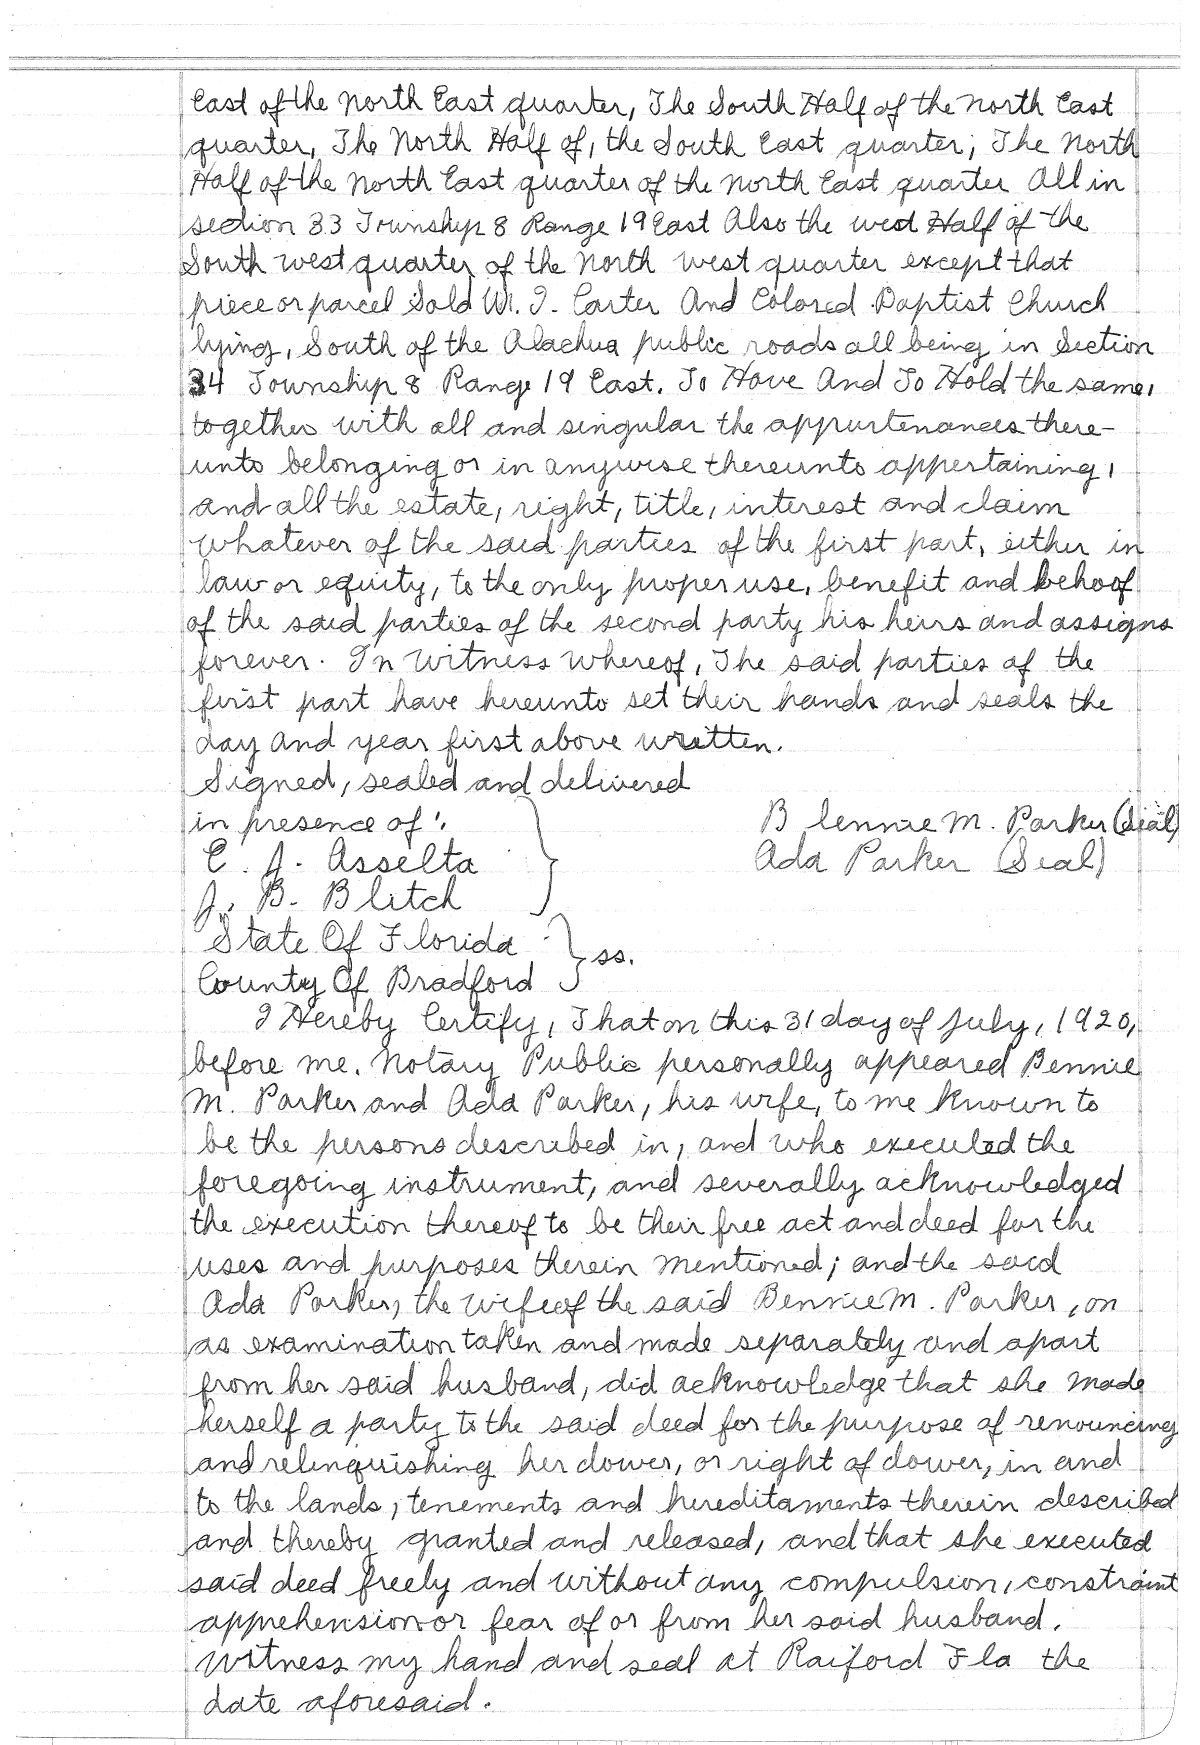 East of the North East quarter, The South Half of the North East
quarter, The North Half of, the South East quarter; The North
Half of the North East quarter of the North East quarter All in
section 33 Township 8 Range 19 East Also the west Half of the
South west quarter of the North west quarter except that
piece or parcel Sold W. I. Carter And Colored Baptist Church
lying, South of the Alachua public roads all being in Section
34 Township 8 Range 19 East. To Have And To Hold the same,
together with all and singular the appurtenances there-
unto belonging or in anywise thereunto appertaining,
and all the estate, right, title, interest and claim
whatever of the said parties of the first part, either in
law or equity, to the only proper use, benefit and behoof
of the said parties of the second party his heirs and assigns
forever. In Witness Whereof, The said parties of the
first part have hereunto set their hands and seals the
day and year first above written.
Signed, sealed and delivered
in presence of:
B lennie M. Parker (Seal)
E. J. Asselta
Ada Parker (Seal)
J. B. Blitch
State Of Florida
County Of Bradford } ss.
I Hereby Certify, That on this 31 day of July, 1920,
before me. Notary Public personally appeared Bennie
M. Parker and Ada Parker, his wife, to me known to
be the persons described in, and who executed the
foregoing instrument, and severally acknowledged
the execution thereof to be their free act and deed for the
uses and purposes therein mentioned; and the said
Ada Parker, the wife of the said Bennie M. Parker, on
as examination taken and made separately and apart
from her said husband, did acknowledge that she made
herself a party to the said deed for the purpose of renouncing
and relinquishing her dower, or right of dower, in and
to the lands, tenements and hereditaments therein described
and thereby granted and released, and that she executed
said deed freely and without any compulsion, constraint
apprehension or fear of or from her said husband.
Witness my hand and seal at Raiford Fla the
date aforesaid.